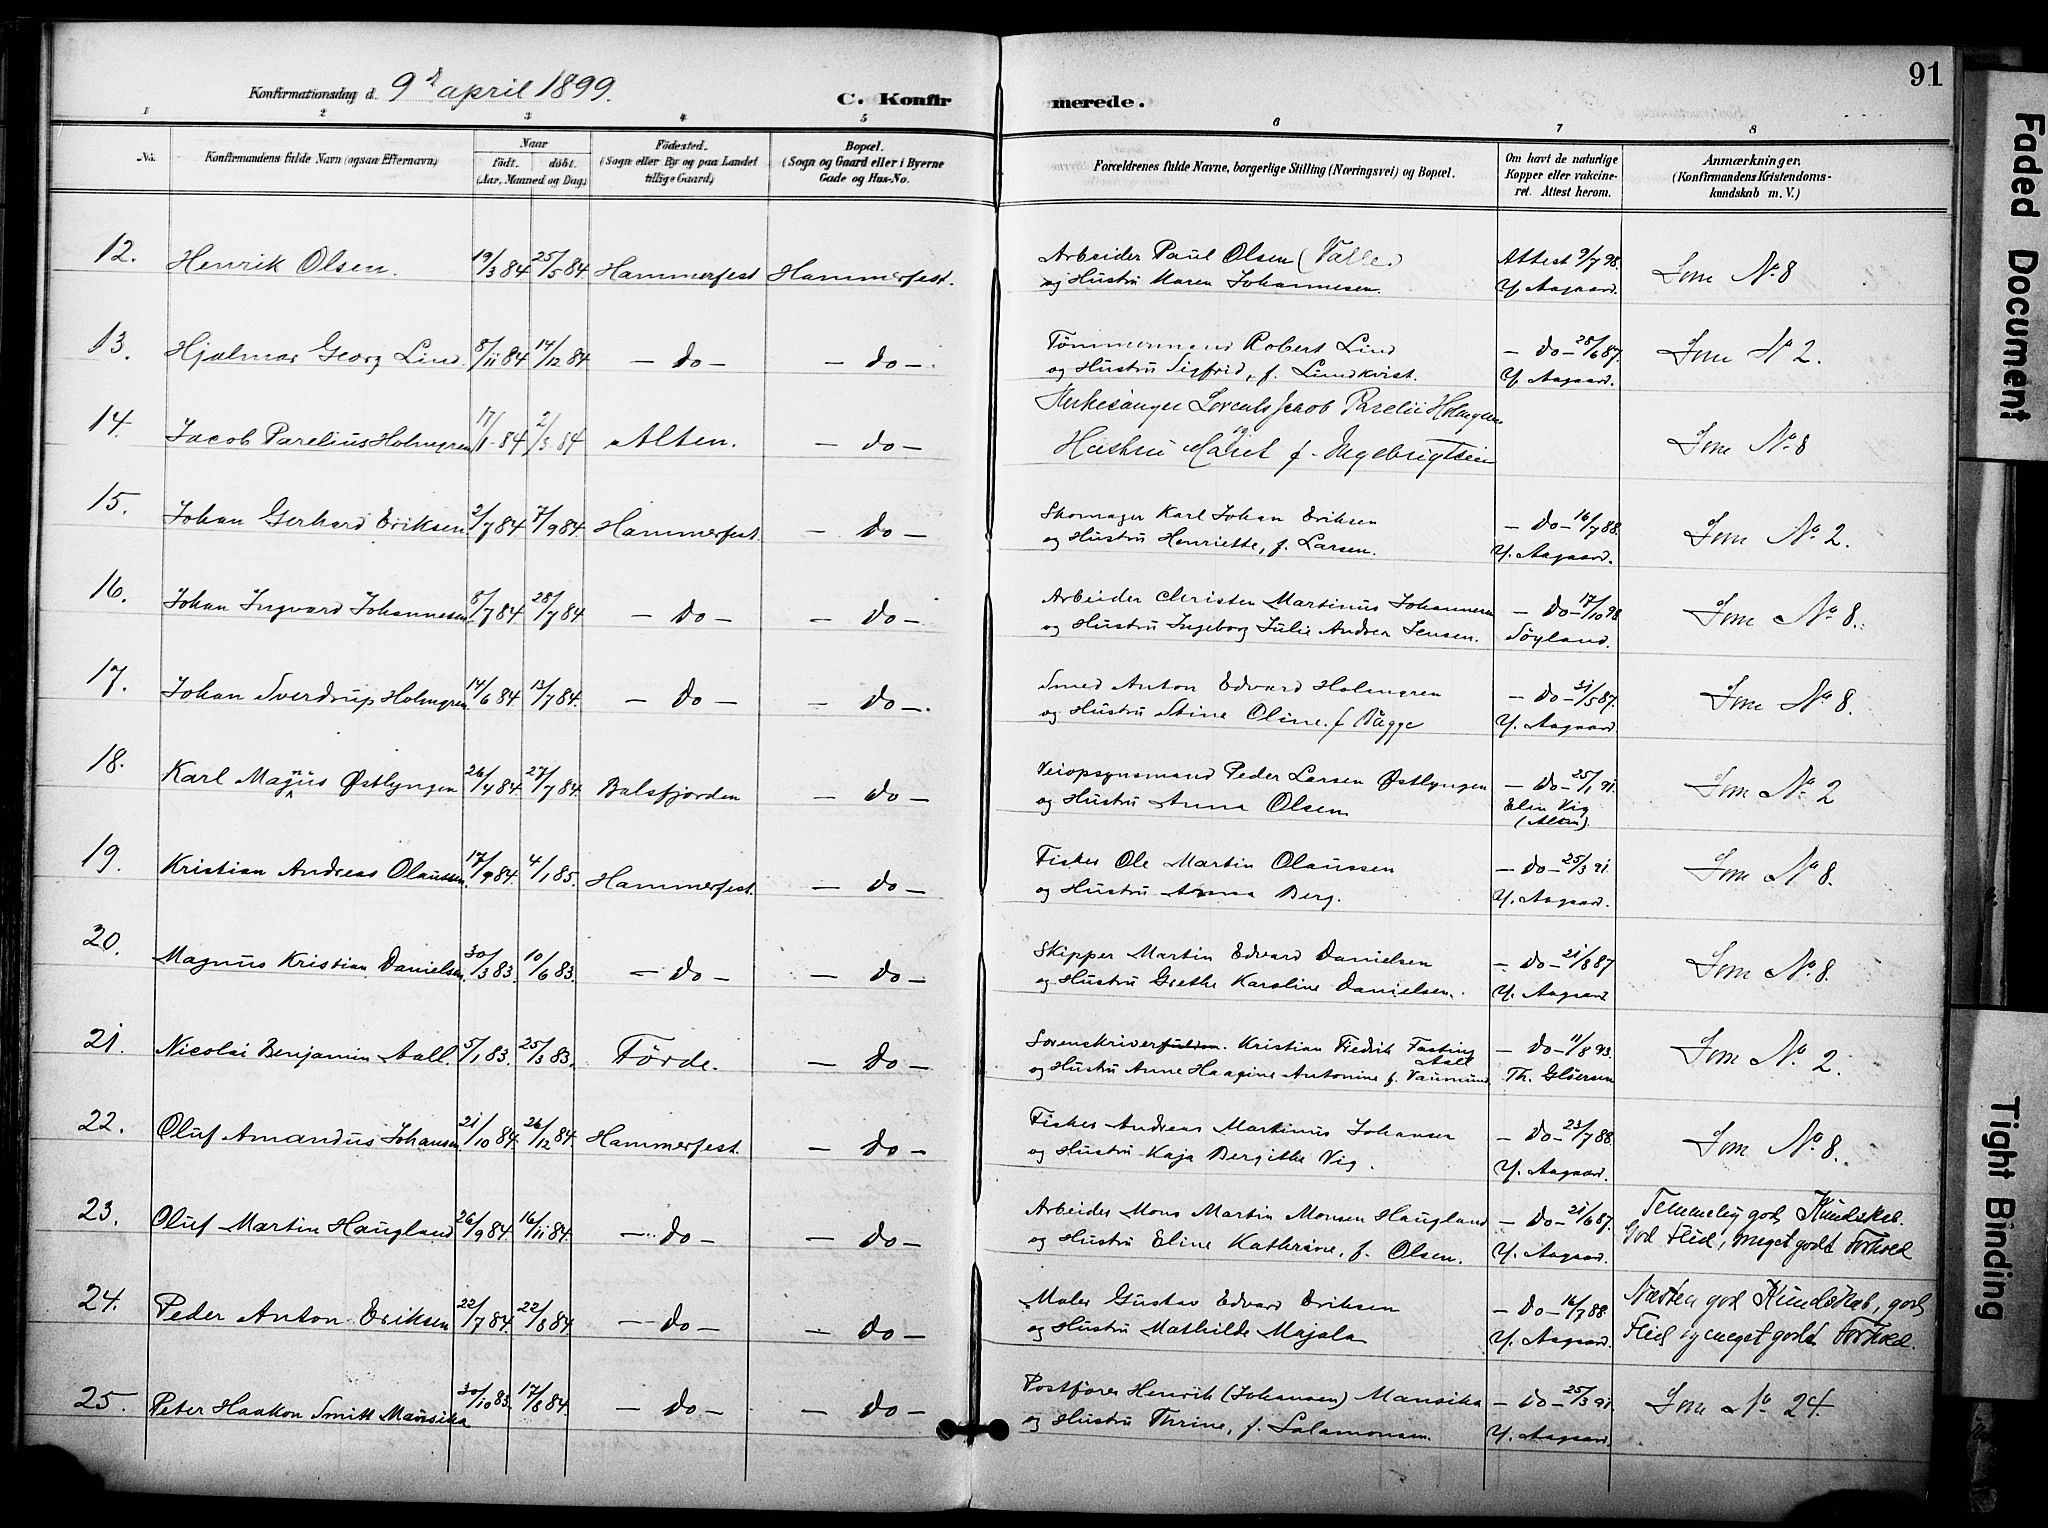 91
Konfirmationsdag d. 9d april 1899.
C. Konfirmerede.
1 2 3 4 5 6 7 8
No.
Konfirmandens fulde Navn (ogsaa Efternavn)
Naar
födt. döbt.
(Aar, Maaned og Dag.)
Födested.
(Sogn eller By og paa Landet
tillige Gaard)
Bopæl.
(Sogn og Gaard eller i Byerne
Gade og Hus-No.
Forældrenes fulde Navne, borgerlige Stilling (Næringsvei) og Bopæl.
Om havt de naturlige
Kopper eller vakcine-
ret. Attest herom.
Anmærkninger.
(Konfirmandens Kristendoms-
kundskab m. V.)
12. Henrik Olsen. 19/3 84 25/5 84 Hammerfest Hammerfest. Arbeider Paul Olsen (Valle.) Attest 9/7 98. Som No. 8
og Hustru Maren Johannesen. Y. Aagaard.
13. Hjalmar Georg Lind. 8/11 84 14/12 84 — do — — do — Tømmermand Robert Lind — do — 28/6 87. Som No 2.
og Hustru Sigfrid, f. Lindkvist. Y. Aagaard.
14. Jacob Parelius Holmgren 17/1 84 2/3 84 Alten. — do — Kirkesanger Jacob Parelii Holmgren Som No. 8
Hustru Maret f. Ingebrigtsen
15. Johan Gerhard Eriksen 2/7 84 7/9 84. Hammerfest. — do — Skomager Karl Johan Eriksen — do — 16/7 88. Som No 2.
og Hustru Henriette, f. Larsen. Y. Aagaard.
16. Johan Ingvard Johannesen 8/7 84 28/7 84 — do — — do — Arbeider Christen Martinus Johannesen — do — 17/10 98. Som No 8.
og Hustru Ingeborg Julie Andrea Jensen. Söyland.
17. Johan Sverdrup Holmgren 14/6 84 13/7 84. — do — — do — Smed Anton Edvard Holmgren — do — 31/5 87. Som No 8.
og Hustru Stine Oline. f. Bagge Y. Aagaard
18. Karl Magnus Østlyngen 26/4 84. 27/7 84. Balsfjorden — do — Veiopsynsmand Peder Larsen Østlyngen — do — 25/1 91. Som No 2
og Hustru Anna Olsen Elin Vig
(Alten).
19. Kristian Andreas Olaussen. 17/9 84. 4/1 85. Hammerfest. — do — Fisker Ole Martin Olaussen — do — 25/3 91. Som No 8.
og Hustru Anna Berg. Y. Aagaard.
20. Magnus Kristian Danielsen 30/3 83. 10/6 83. — do — — do — Skipper Martin Edvard Danielsen — do — 21/8 87 Som No. 8.
og Hustru Grethe Karoline Danielsen. Y. Aagaard
21. Nicolai Benjamin Aall. 5/1 83. 25/3 83. Förde. — do — Sorenskriverfuldm. Kristian Fredrik Fasting — do — 11/8 93. Som No 2.
Aall
og Hustru Anne Haagine Antonine f. Vaumund. Th. Gløersen
22. Oluf Amandus Johansen. 21/10 84. 26/12 84. Hammerfest. — do — Fisker Andreas Martinus Johansen — do — 23/7 88. Som No 8.
og Hustru Kaja Bergithe Vig. Y. Aagaard.
23. Oluf Martin Haugland 26/9 84 16/11 84 — do — — do — Arbeider Mons Martin Monsen Haugland — do — 21/6 87. Temmelig god Kundskab.
og Hustru Eline Kathrine, f. Olsen. Y. Aagaard. God Flid, meget godt Forhold
24. Peder Anton Eriksen 22/7 84. 22/8 84 — do — — do — Maler Gustav Edvard Eriksen — do — 16/7 88. Næsten god Kundskab, god
og Hustru Mathilde Majala Y. Aagaard Flid og meget godt Forhold.
25. Peter Haakon Smitt Mansika 30/10 83. 17/8 84. — do — — do — Postfører Henrik (Johansen) Mansika — do — 25/3 91. Som No 24.
og Hustru Thrine, f. Salamonsen. Y. Aagaard.
Faded Document
Tight Binding